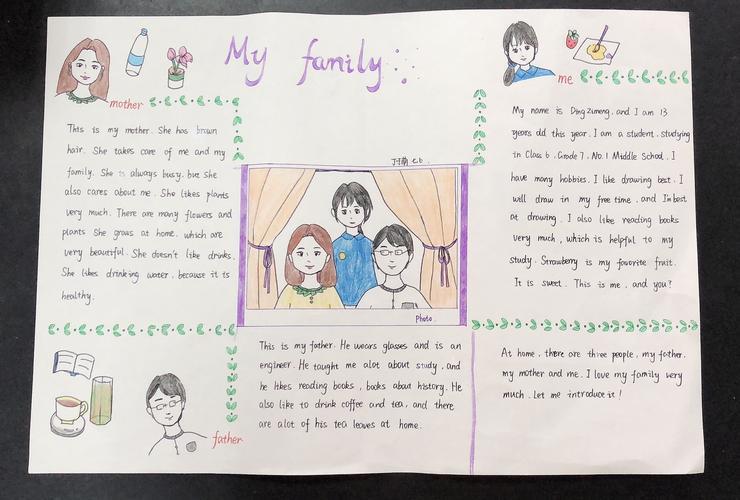 My family
mother
This is my mother. She has brown
hair. She takes care of me and my
family. She is always busy. but she
also cares about me. She likes plants
very much. There are many flowers and
plants She grows at home. which are
very beautiful. She doesn't like drinks.
She likes drinking water, because it is
healthy.
me
My name is Ding Zimeng, and I am 13
years old this year. I am a student. studying
in Class 6, Grade 7, No.1 Middle School. I
have many hobbies. I like drawing best. I
will draw in my free time, and I'm best
at drawing. I also like reading books
very much, which is helpful to my
study. Strawberry is my favorite fruit.
It is sweet. This is me, and you?
Photo.
father
This is my father. He wears glasses and is an
engineer. He taught me alot about study, and
he likes reading books, books about history. He
also like to drink coffee and tea, and there
are alot of his tea leaves at home.
At home, there are three people, my father,
my mother and me. I love my family very
much. Let me introduce it!